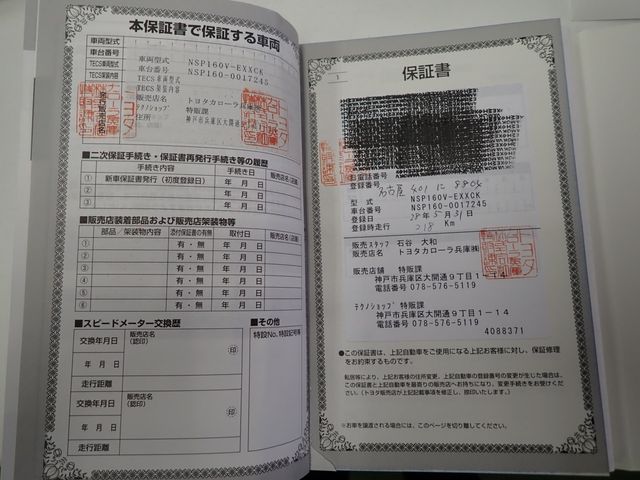 本保証書で保証する車両
車両型式
車台番号
TECS車両型式
TECS架装内容
車両型式 NSP160V-EXXCK
車台番号 NSP160-0017245
TECS車両型式
TECS架装内容
販売店名 トヨタカローラ兵庫㈱
テクノショップ 特販課
住所 神戸市兵庫区大開通9丁目
■二次保証手続き・保証書再発行手続き等の履歴
手続き内容 手続き日 販売店名(店舗)
① 新車保証書発行(初度登録日) 年 月 日
② 年 月 日
③ 年 月 日
■販売店装着部品および販売店架装物等
部品/架装物内容 添付保証書の有無 取付日 販売店名(店舗)
① 有・無 年 月 日
② 有・無 年 月 日
③ 有・無 年 月 日
④ 有・無 年 月 日
⑤ 有・無 年 月 日
⑥ 有・無 年 月 日
■スピードメーター交換歴
交換年月日 販売店名(認印)
年 月 日 印
走行距離
交換年月日 販売店名(認印)
年 月 日 印
走行距離
■その他
特設No.特設記号等
1
保証書
お電話番号
登録番号 名古屋 401 に 8804
型 式 NSP160V-EXXCK
車台番号 NSP160-0017245
登録日 28年 5月 31日
登録時走行 218 Km
販売スタッフ 石谷 大和
販売店名 トヨタカローラ兵庫㈱
販売店舗 特販課
神戸市兵庫区大開通9丁目1-14
電話番号 078-576-5119
テクノショップ 特販課
神戸市兵庫区大開通9丁目1-14
電話番号 078-576-5119
4088371
●この保証書は、上記自動車をご使用になる上記お客様に対し、保証修理
をお約束するものです。
転居等により、上記お客様の住所変更、上記自動車の登録番号の変更が生じた場合は、
この保証書と上記自動車を最寄りの販売店へお持ちになり、変更手続きをお受けくだ
さい。(トヨタ販売店が上記記載事項を修正し、押印いたします。)
※お車を譲渡される場合には、このページを切り離してください。